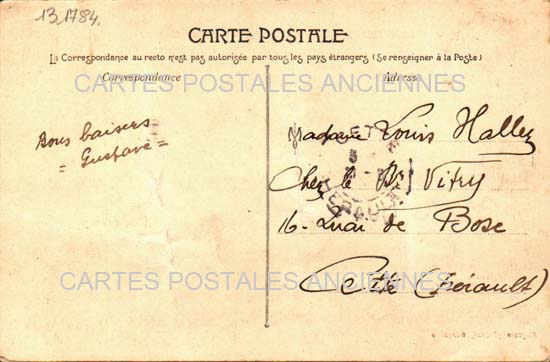 13.1784.
CARTE POSTALE
La Correspondance au recto n'est pas autorisée par tous les pays étrangers (Se renseigner à la Poste)
CARTES POSTALES ANCIENNES
Correspondance
Adresse
Bons baisers
= Gustave =
Madame Louis Hallez
Chez le Bt Vitry
16 - Quai de Bosc
Cette (Hérault)
CETTE
HERAULT
CARTES POSTALES ANCIENNES